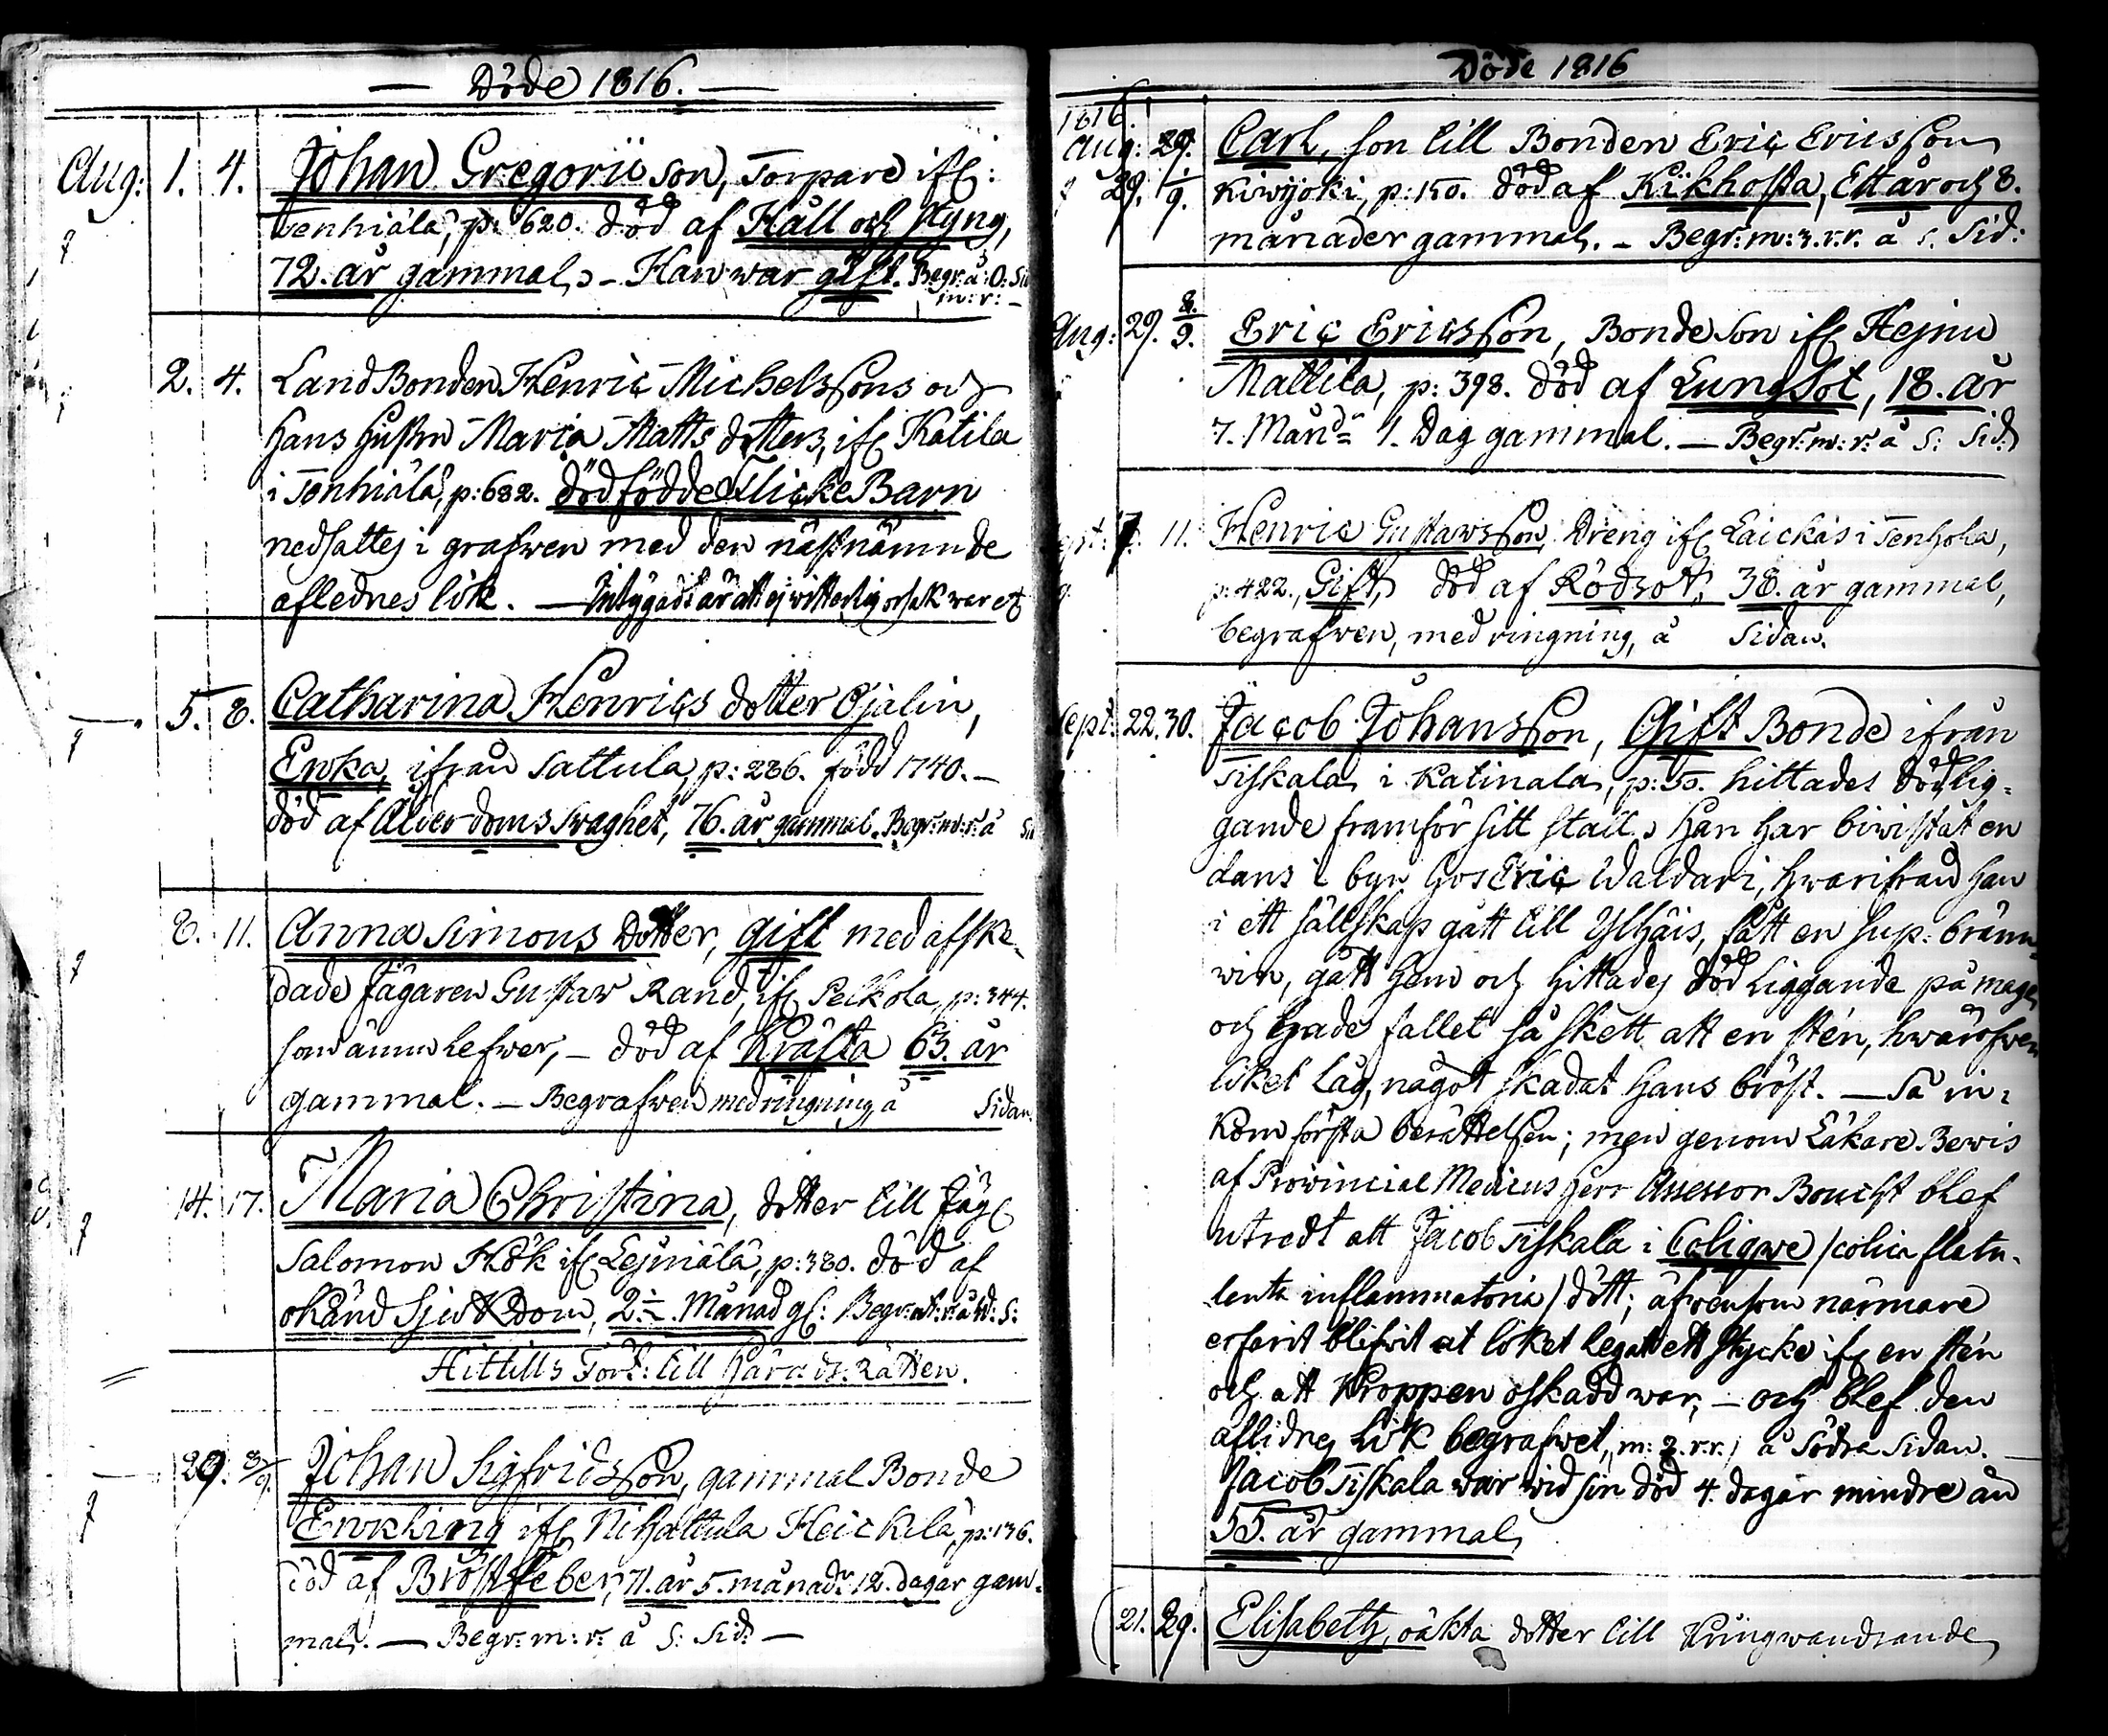 Döde 1816.
Aug: 1. 4. Johan Gregorii son, Torpare ifr:
Tenhiälä, p: 620. död af Håll och Styng,
72. år gammal. - Han war gift. Begr: å: O: Sid
m: r: -
2. 4. LandBonden Henric Michelssons och
Hans Hustru Maria Matts dotters, ifr Katila
i Tenhiälä, p: 682. dödfödde FlickeBarn
nedsattes i grafwen med den näst nämnde
aflednes lik. - Intygadt är att ej witterlig orsak war etc
5. 8. Catharina Henrics dotter Öjalin,
Enka, ifrån Sattula, p: 286. född 1740. -
död af Ålderdoms swaghet, 76. år gammal. Begr: m: r: å Sid
8. 11. Anna Simons Dotter, gift med afske-
dade Jägaren Gustaw Rand, ifr Pelkola, p: 344.
som ännu lefwer, - död af Kräfta 63. år
gammal. - Begrafwen med ringning å Sidan.
14. 17. Maria Christina, dotter till Jäg:
Salomon Hök ifr Lejniälä, p: 380. död af
okänd Sjukdom, 2 1/2. Månad gl: Begr: ut: r: å N: S:
Hittills Fört: till Härads Rätten.
29. 3/9. Johan Sigfridsson, gammal Bonde
Enkling ifr Nihattula Heickilä, p: 136.
död af Bröstfeber, 71. år 5. månadr 12. dagar gam-
mal. - Begr: m: r: å S: Sid: -
Döde 1816
1816.
Aug: 29. Carl, son till Bonden Eric Ericsson
29. 1/9. Kiwijoki, p: 150. död af Kikhosta, Ett år och 8.
månader gammal. - Begr: m: 3. r. r. å S. Sid:
Aug: 29. 8./9. Eric Ericsson, Bonde Son ifr Hejnu
Mattila, p: 398. död af Lungsot, 18. år
7. Månd: 1. Dag gammal. - Begr: m: r: å S: Sid:
Sept: 11. Henric Gustawsson, Dreng ifr Laickas i Tenhola,
p: 422., Gift, död af Rödsot, 38. år gammal,
begrafwen, med ringning, å Sidan.
Sept: 22. 30. Jacob Johansson, Gift Bonde ifrån
Tiskala i Katinala, p: 50. hittades död lig-
gande framför sitt stall. Han har biwistat en
dans i byn hos Eric Waldari, hwarifrån han
i ett sällskap gått till Ylhäis, fått en sup: bränn-
win, gått hem och hittades död liggande på magen
och hade fallet så skett att en sten, hwaröfwer
liket låg, något skadat hans bröst. - Så in-
kom första berättelsen; men genom Läkare Bewis
af Provincial Medicus Herr Assessor Boucht blef
utredt att Jacob Tiskala i Coligwe /colica flatu-
lenta inflammatoria/ dött; äfwensom närmare
erfarit blifwit at liket legat ett stycke ifr en sten
och att Kroppen oskadd war, - och blef den
aflidnes Lik begrafwet, m: 2. r. r. / å Södra Sidan. -
Jacob Tiskala war wid sin död 4. dagar mindre än
55. år gammal
21. 29. Elisabeth, oäkta dotter till Kringwandrande